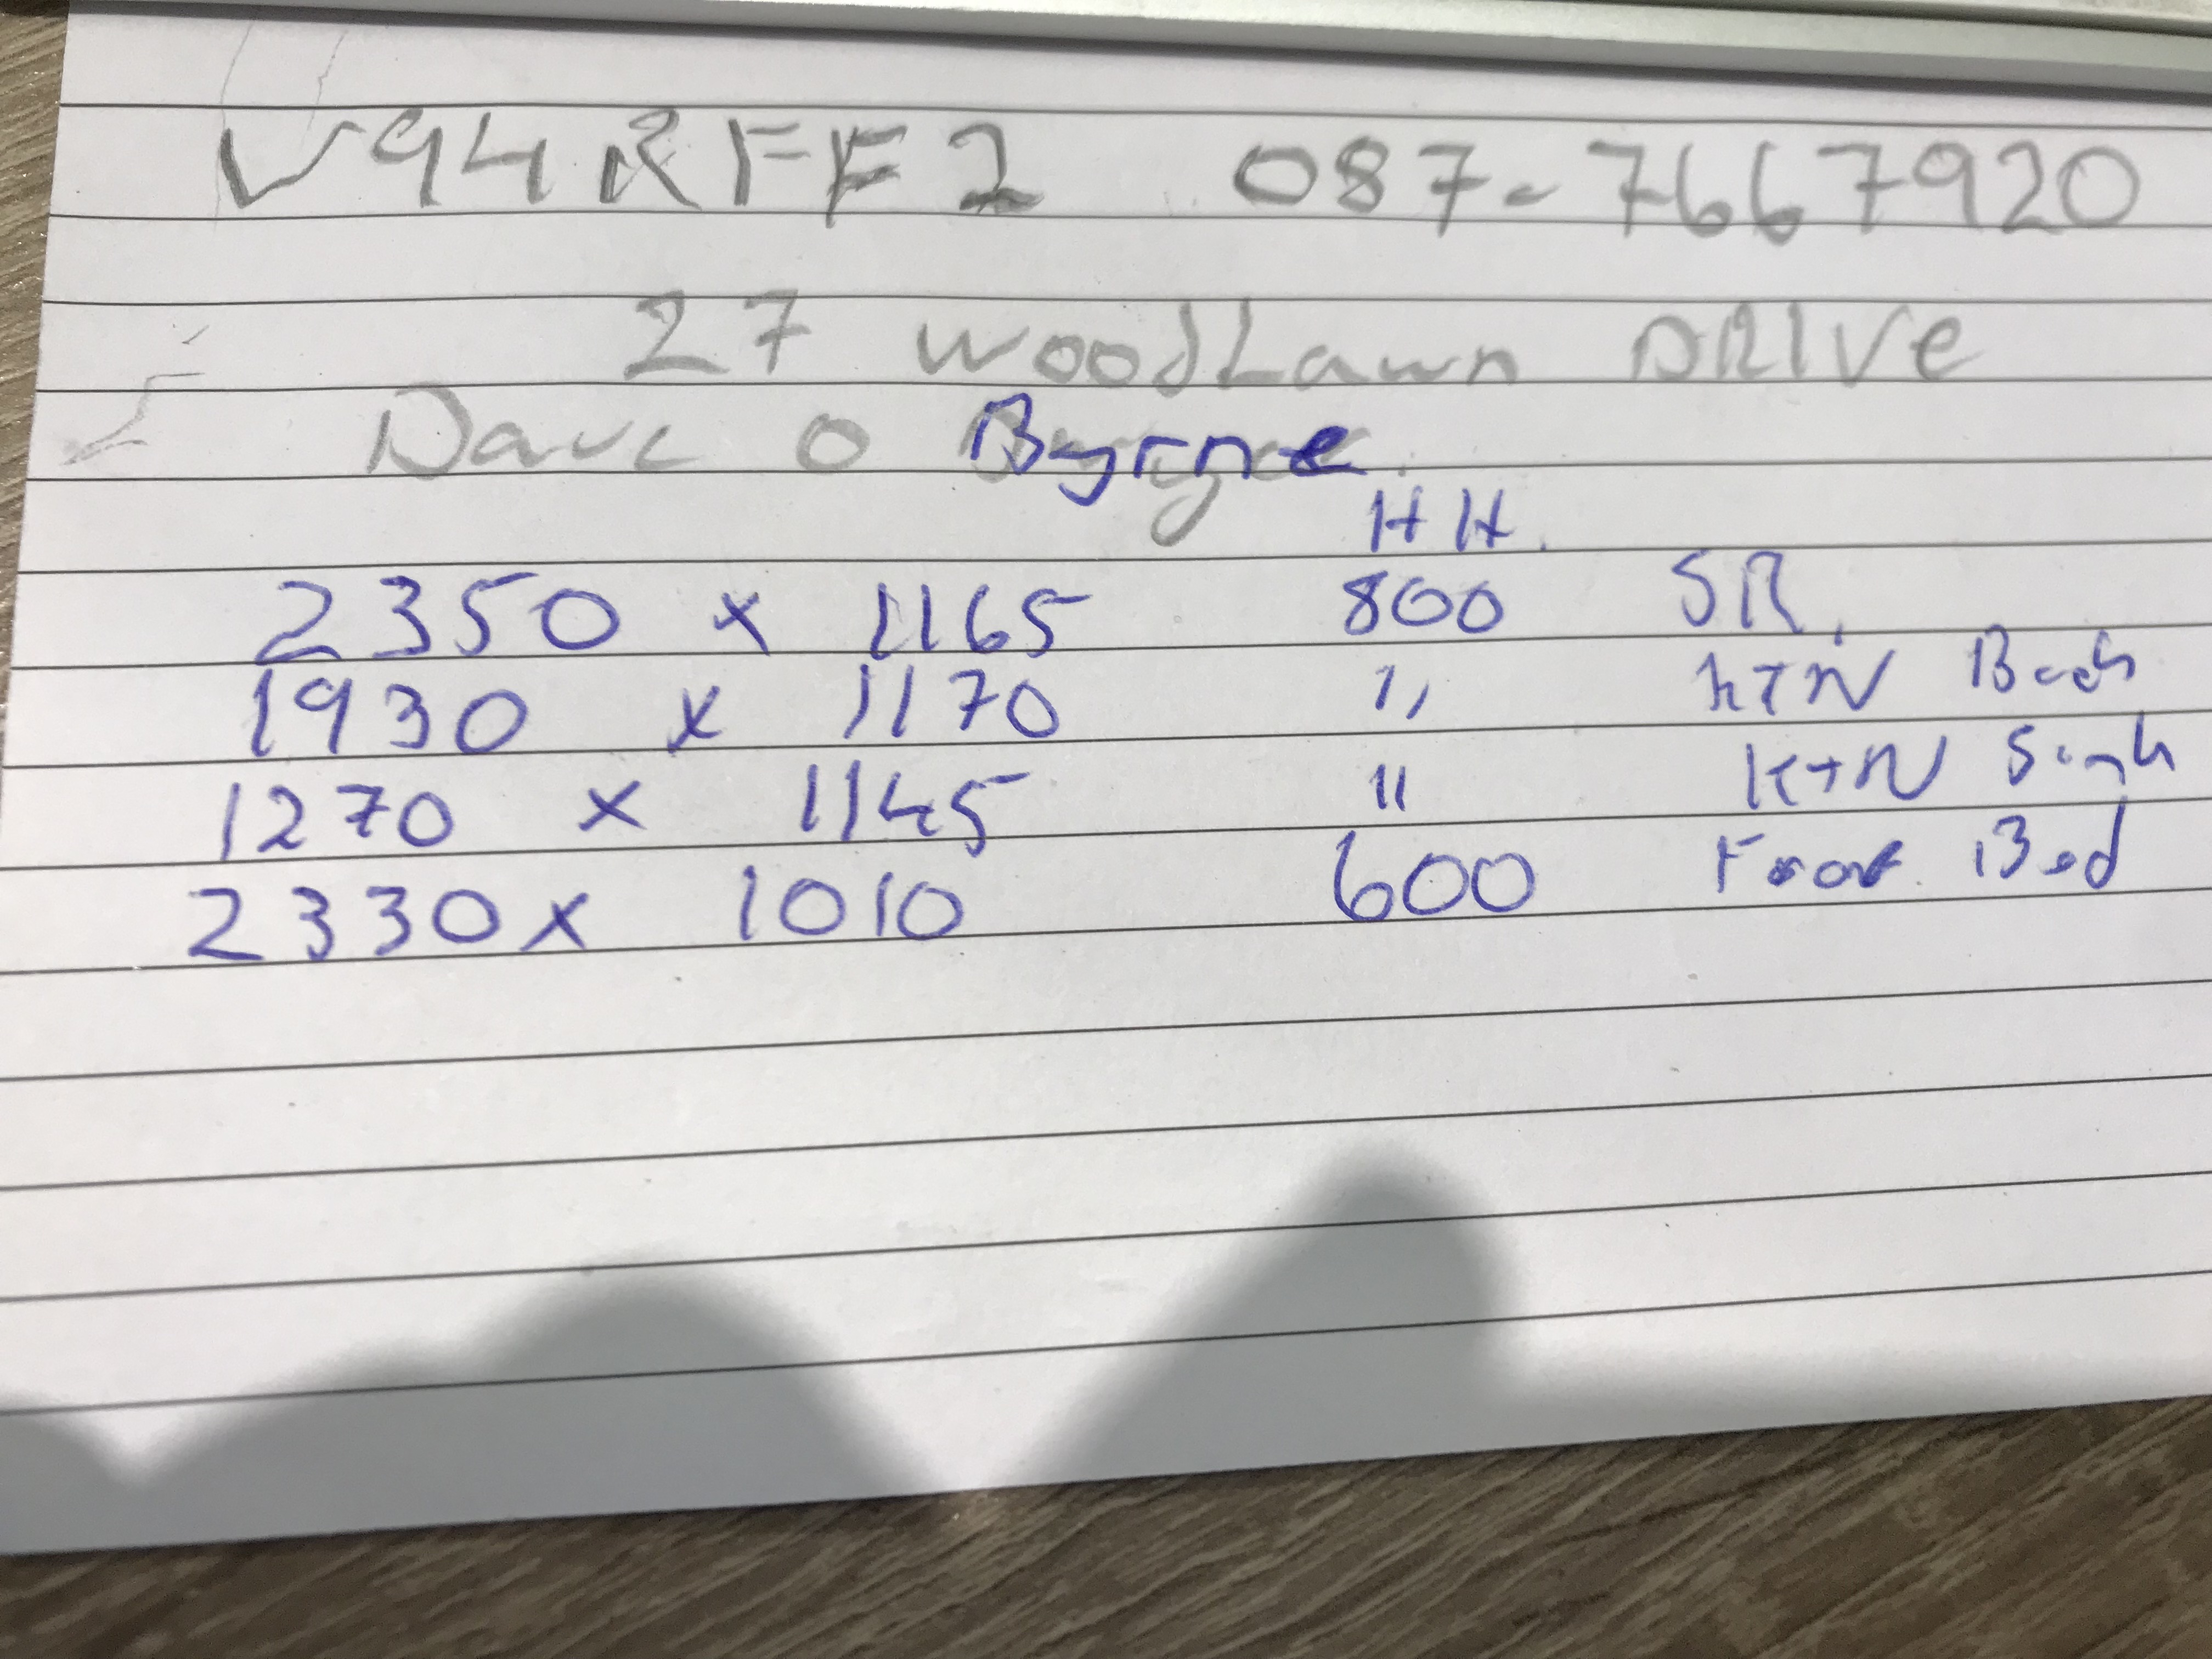 V94RFF2 087-7667920
27 WoodLawn DRIVe
Dave O Byrne
HH.
2350 x 1165 800 SR.
1930 x 1170 " KTN Back
1270 x 1145 " KTN Sink
2330 x 1010 600 Front Bed